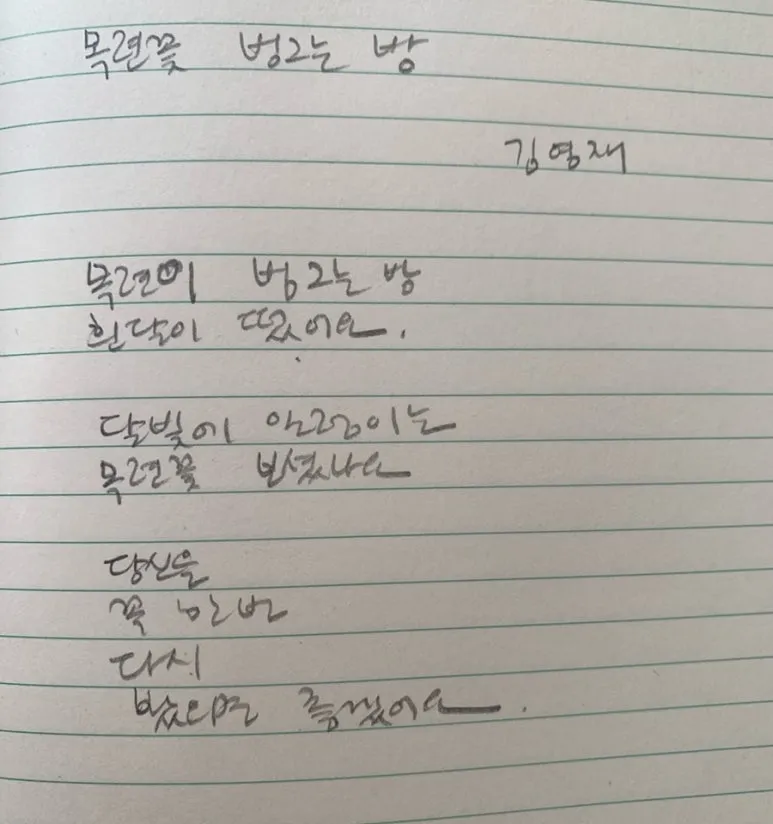 목련꽃 벙그는 밤
김영재
목련이 벙그는 밤
흰달이 떴어요.
달빛에 아롱이는
목련꽃 보셨나요
당신을
꼭 한번
다시
봤으면 좋겠어요.